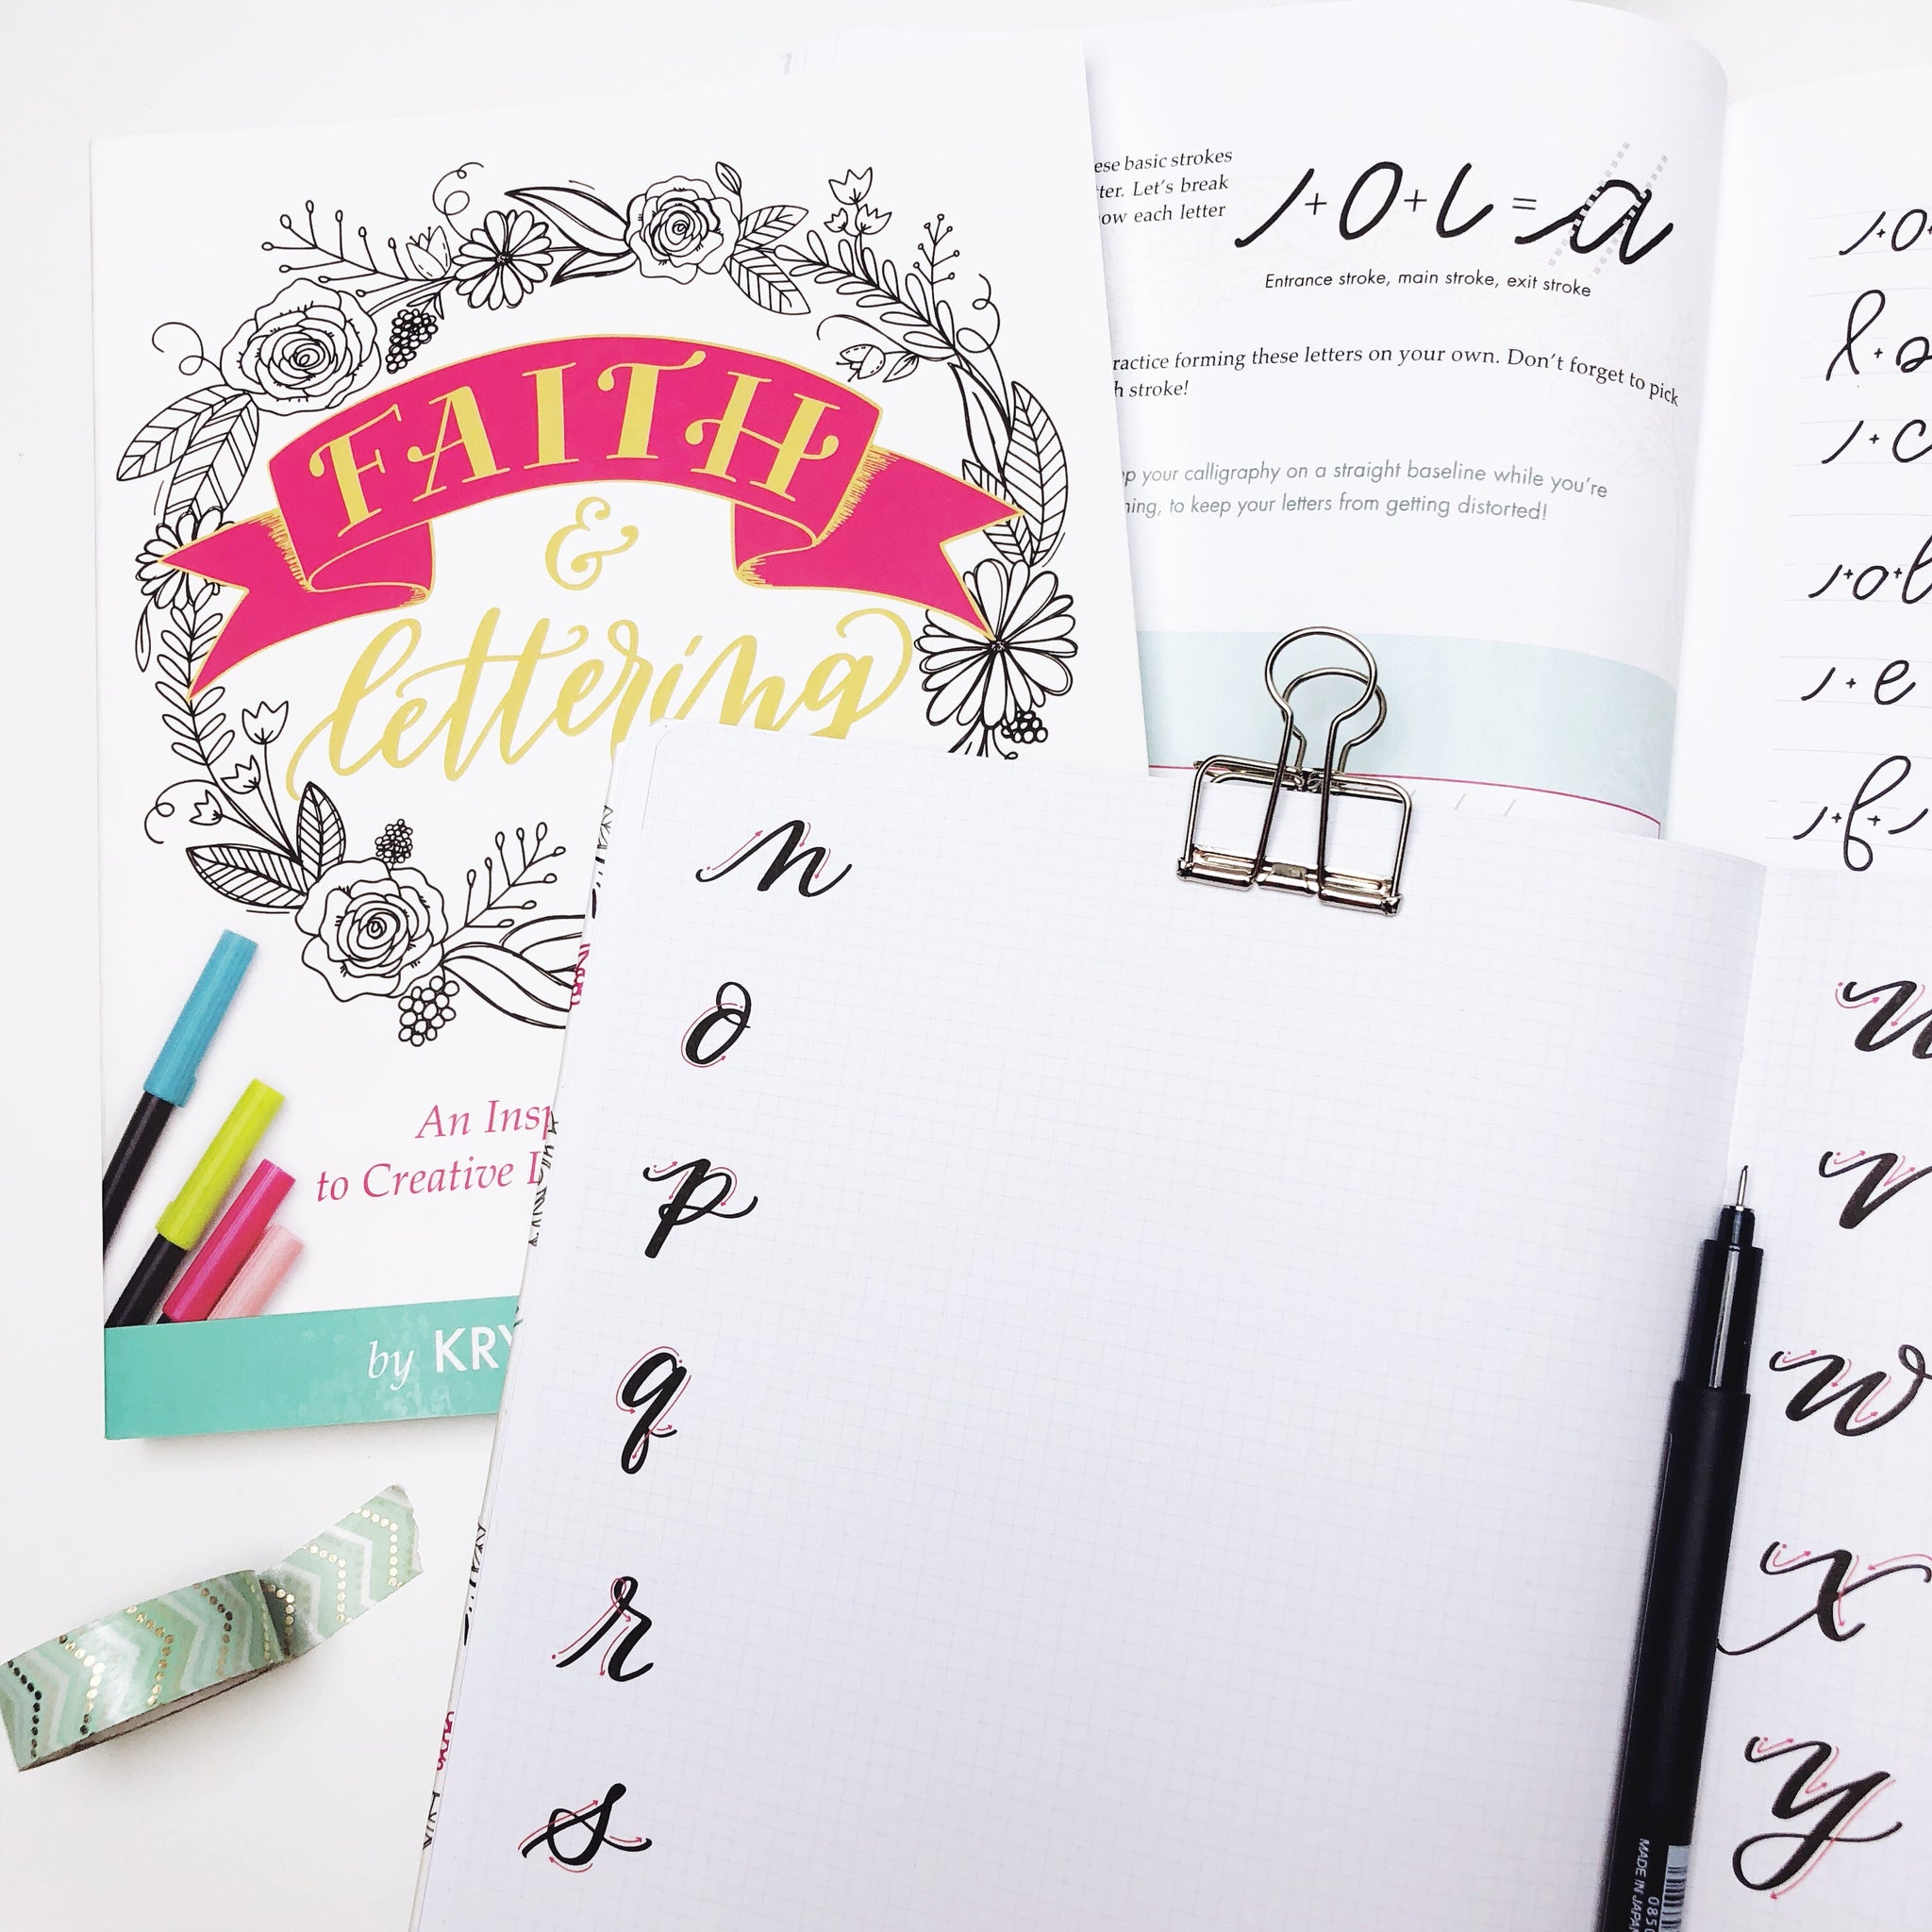 FAITH
&
lettering
An Insp
to Creative
by KRY
ese basic strokes
ter. Let's break
ow each letter
+ o + = a
Entrance stroke, main stroke, exit stroke
ractice forming these letters on your own. Don't forget to pick
h stroke!
p your calligraphy on a straight baseline while you're
ning, to keep your letters from getting distorted!
n
o
p
q
r
s
+ o
+ c
+ o +
+ e
+ f +
u
v
w
x
y
MADE IN JAPAN